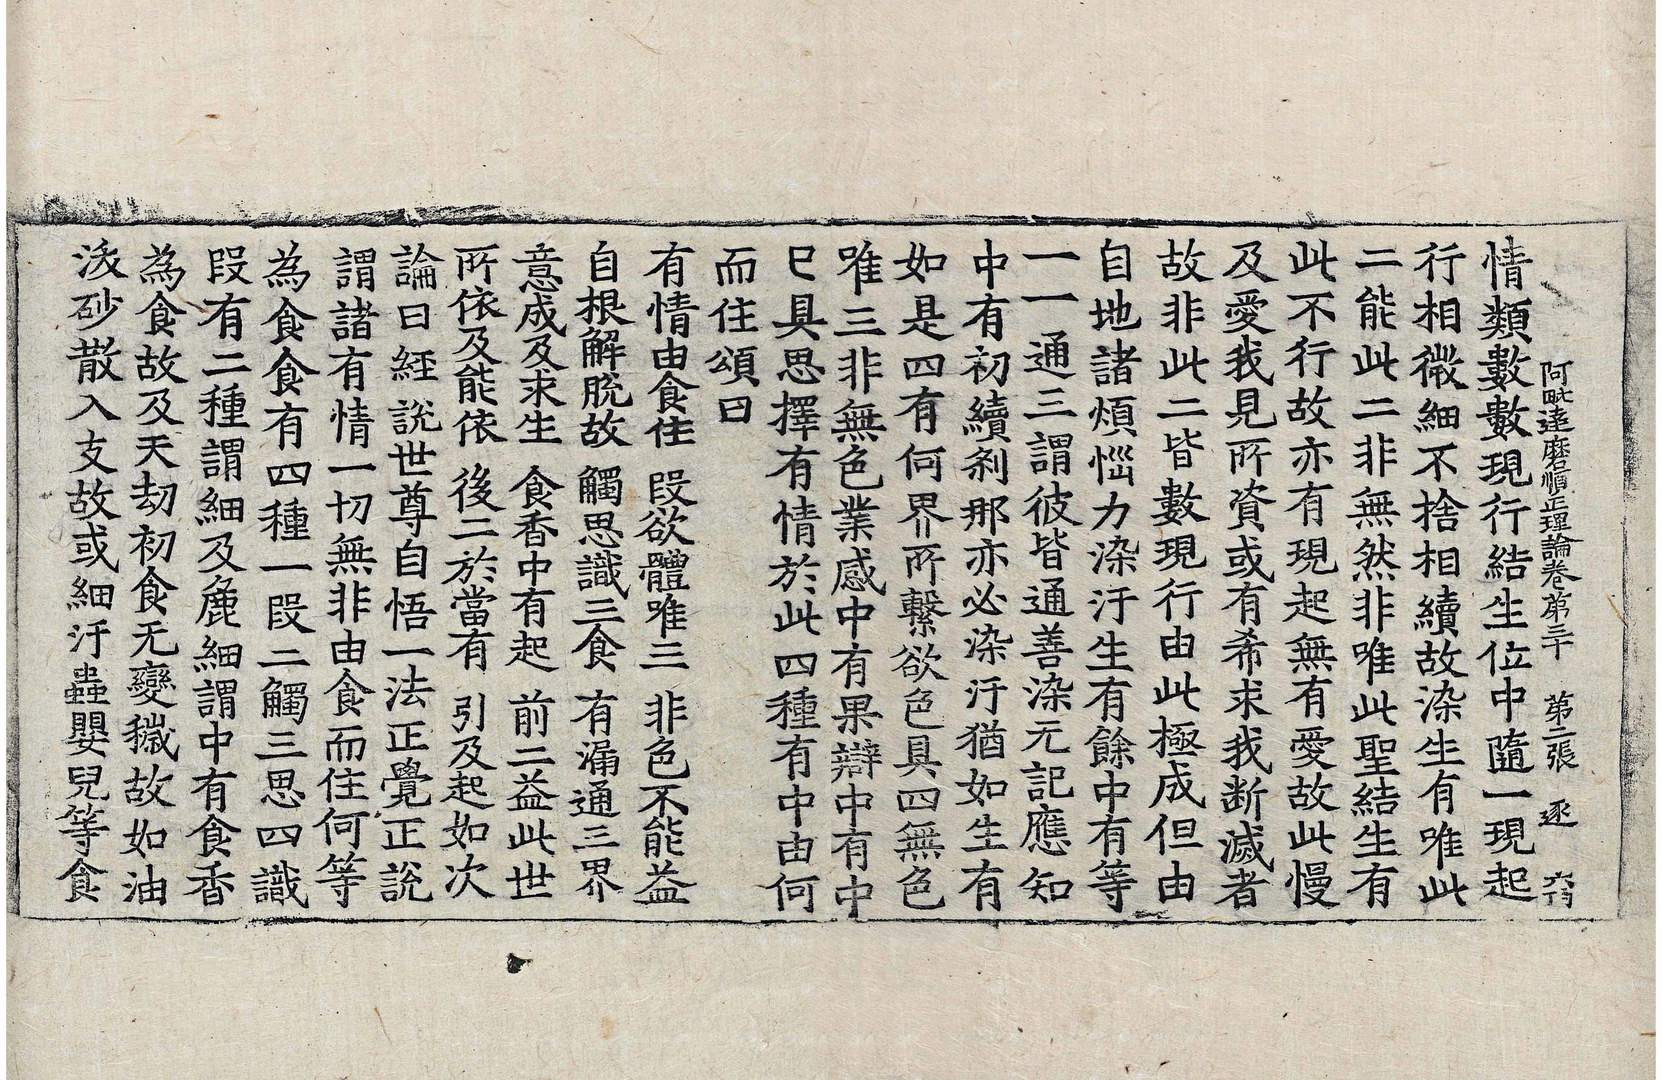 阿毗達磨順正理論卷第三十 第二張 逐
情類數數現行結生位中隨一現起
行相微細不捨相續故染生有唯此
二能此二非無然非唯此聖結生有
此不行故亦有現起無有愛故此慢
及愛我見所資或有希求我断滅者
故非此二皆數現行由此極成但由
自地諸煩惱力染汙生有餘中有等
一一通三謂彼皆通善染无記應知
中有初續刹那亦必染汙猶如生有
如是四有何界所繫欲色具四無色
唯三非無色業感中有果辯中有中
已具思擇有情於此四種有中由何
而住頌曰
有情由食住 段欲體唯三 非色不能益
自根解脫故 觸思識三食 有漏通三界
意成及求生 食香中有起 前二益此世
所依及能依 後二於當有 引及起如次
論曰經說世尊自悟一法正覺正說
謂諸有情一切無非由食而住何等
為食食有四種一段二觸三思四識
段有二種謂細及麁細謂中有食香
為食故及天劫初食无變穢故如油
沃砂散入支故或細汙蟲嬰兒等食